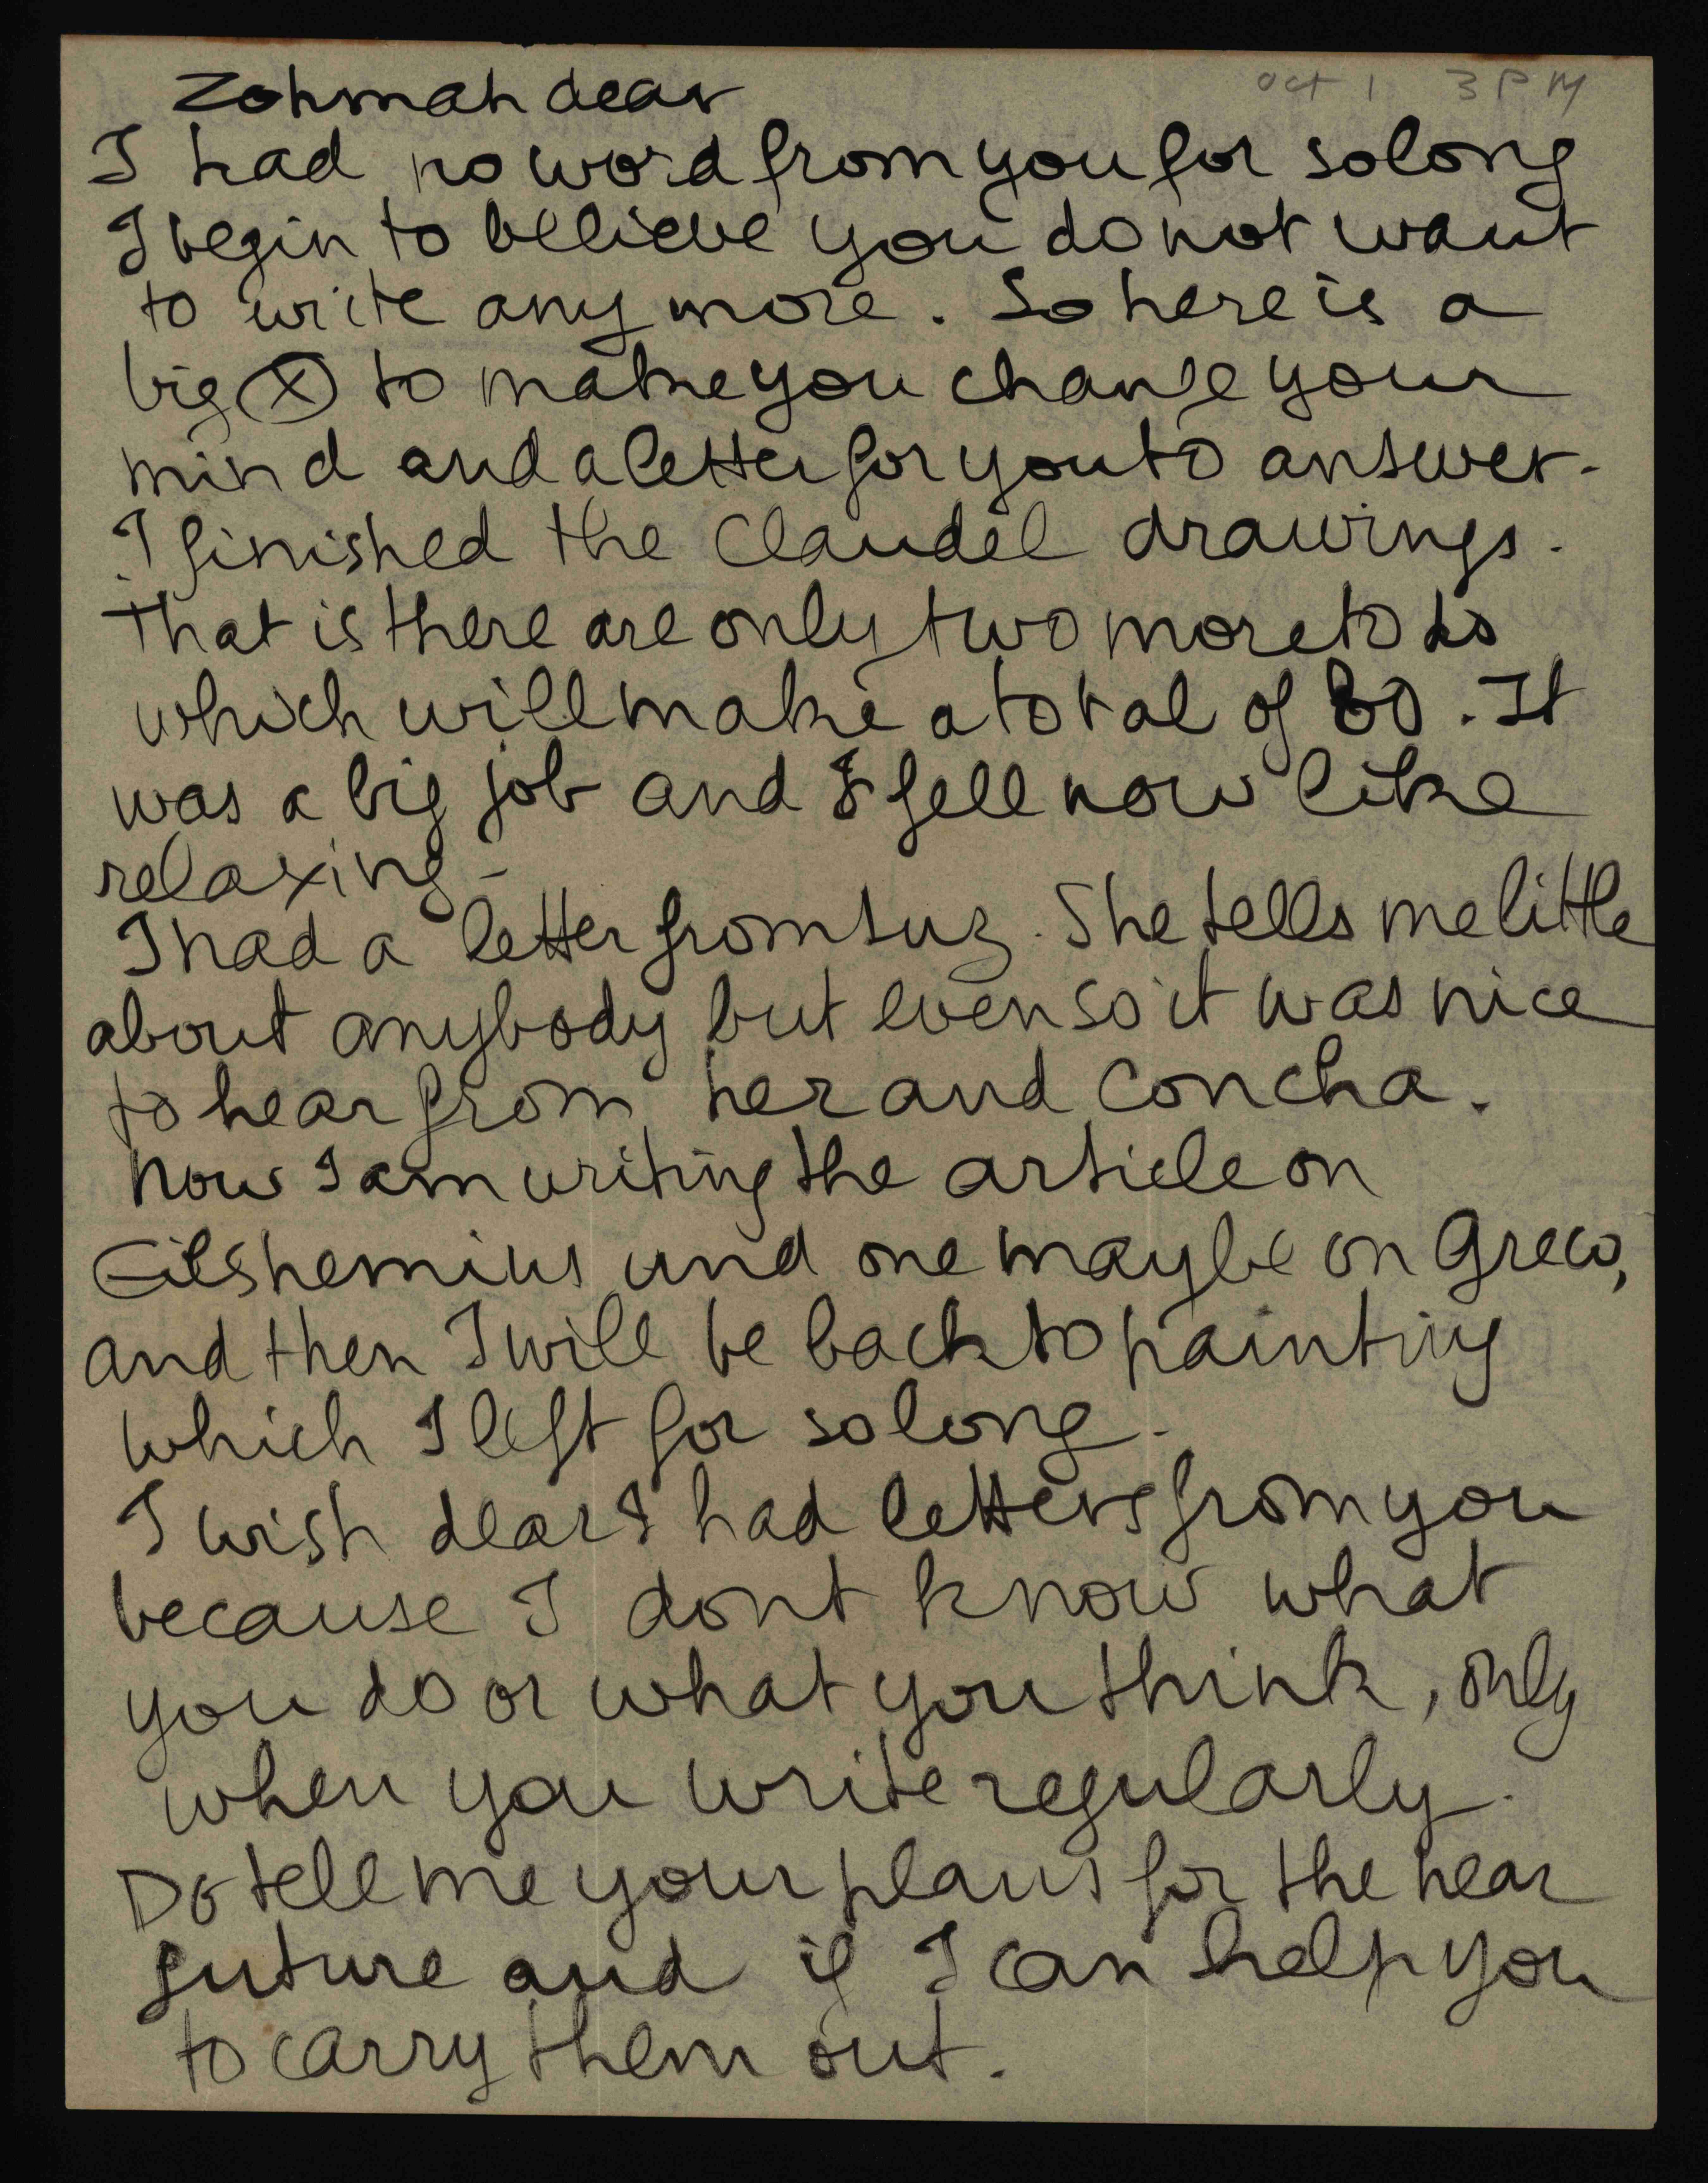 oct 1 3 PM
Zohmah dear
I had no word from you for so long
I begin to believe you do not want
to write any more. So here is a
big ⓧ to make you change your
mind and a letter for you to answer-
I finished the Claudel drawings.
That is there are only two more to do
which will make a total of 80. It
was a big job and I fell now like
relaxing-
I had a letter from Luz. She tells me little
about anybody but even so it was nice
to hear from her and Concha.
Now I am writing the article on
Eilshemius and one maybe on Greco,
and then I will be back to painting
which I left for so long-
I wish dear I had letters from you
because I dont know what
you do or what you think, only
when you write regularly.
Do tell me your plans for the near
future and if I can help you
to carry them out.